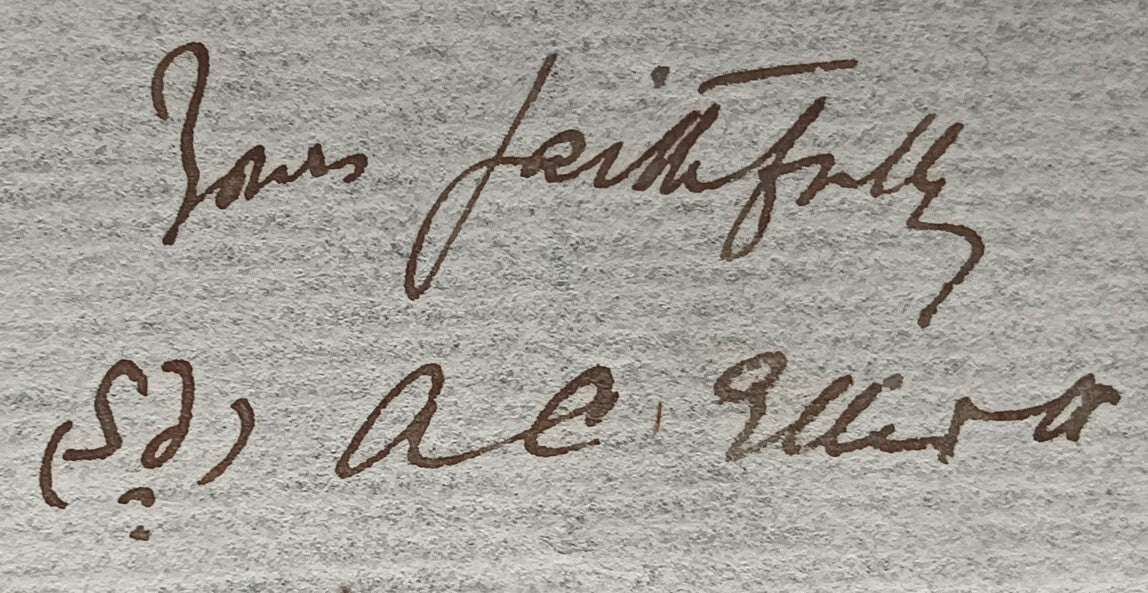 Yours faithfully
(Sd) A C. Elliott